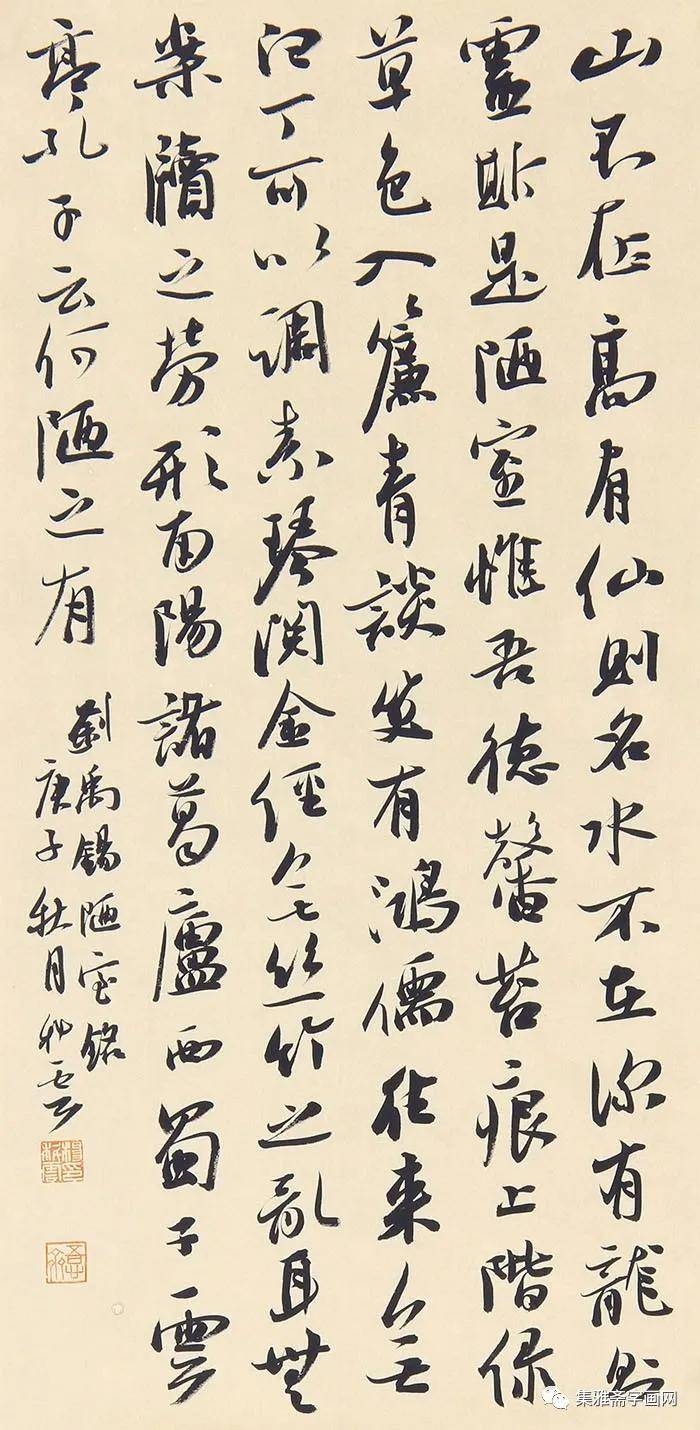 山不在高有仙則名水不在深有龍則
靈斯是陋室惟吾德馨苔痕上階绿
草色入簾青談笑有鴻儒往来无
白丁可以调素琴阅金經无丝竹之乱耳無
案牘之劳形南陽諸葛廬西蜀子雲
亭孔子云何陋之有
劉禹錫陋室銘
庚子秋月
集雅斋字画网